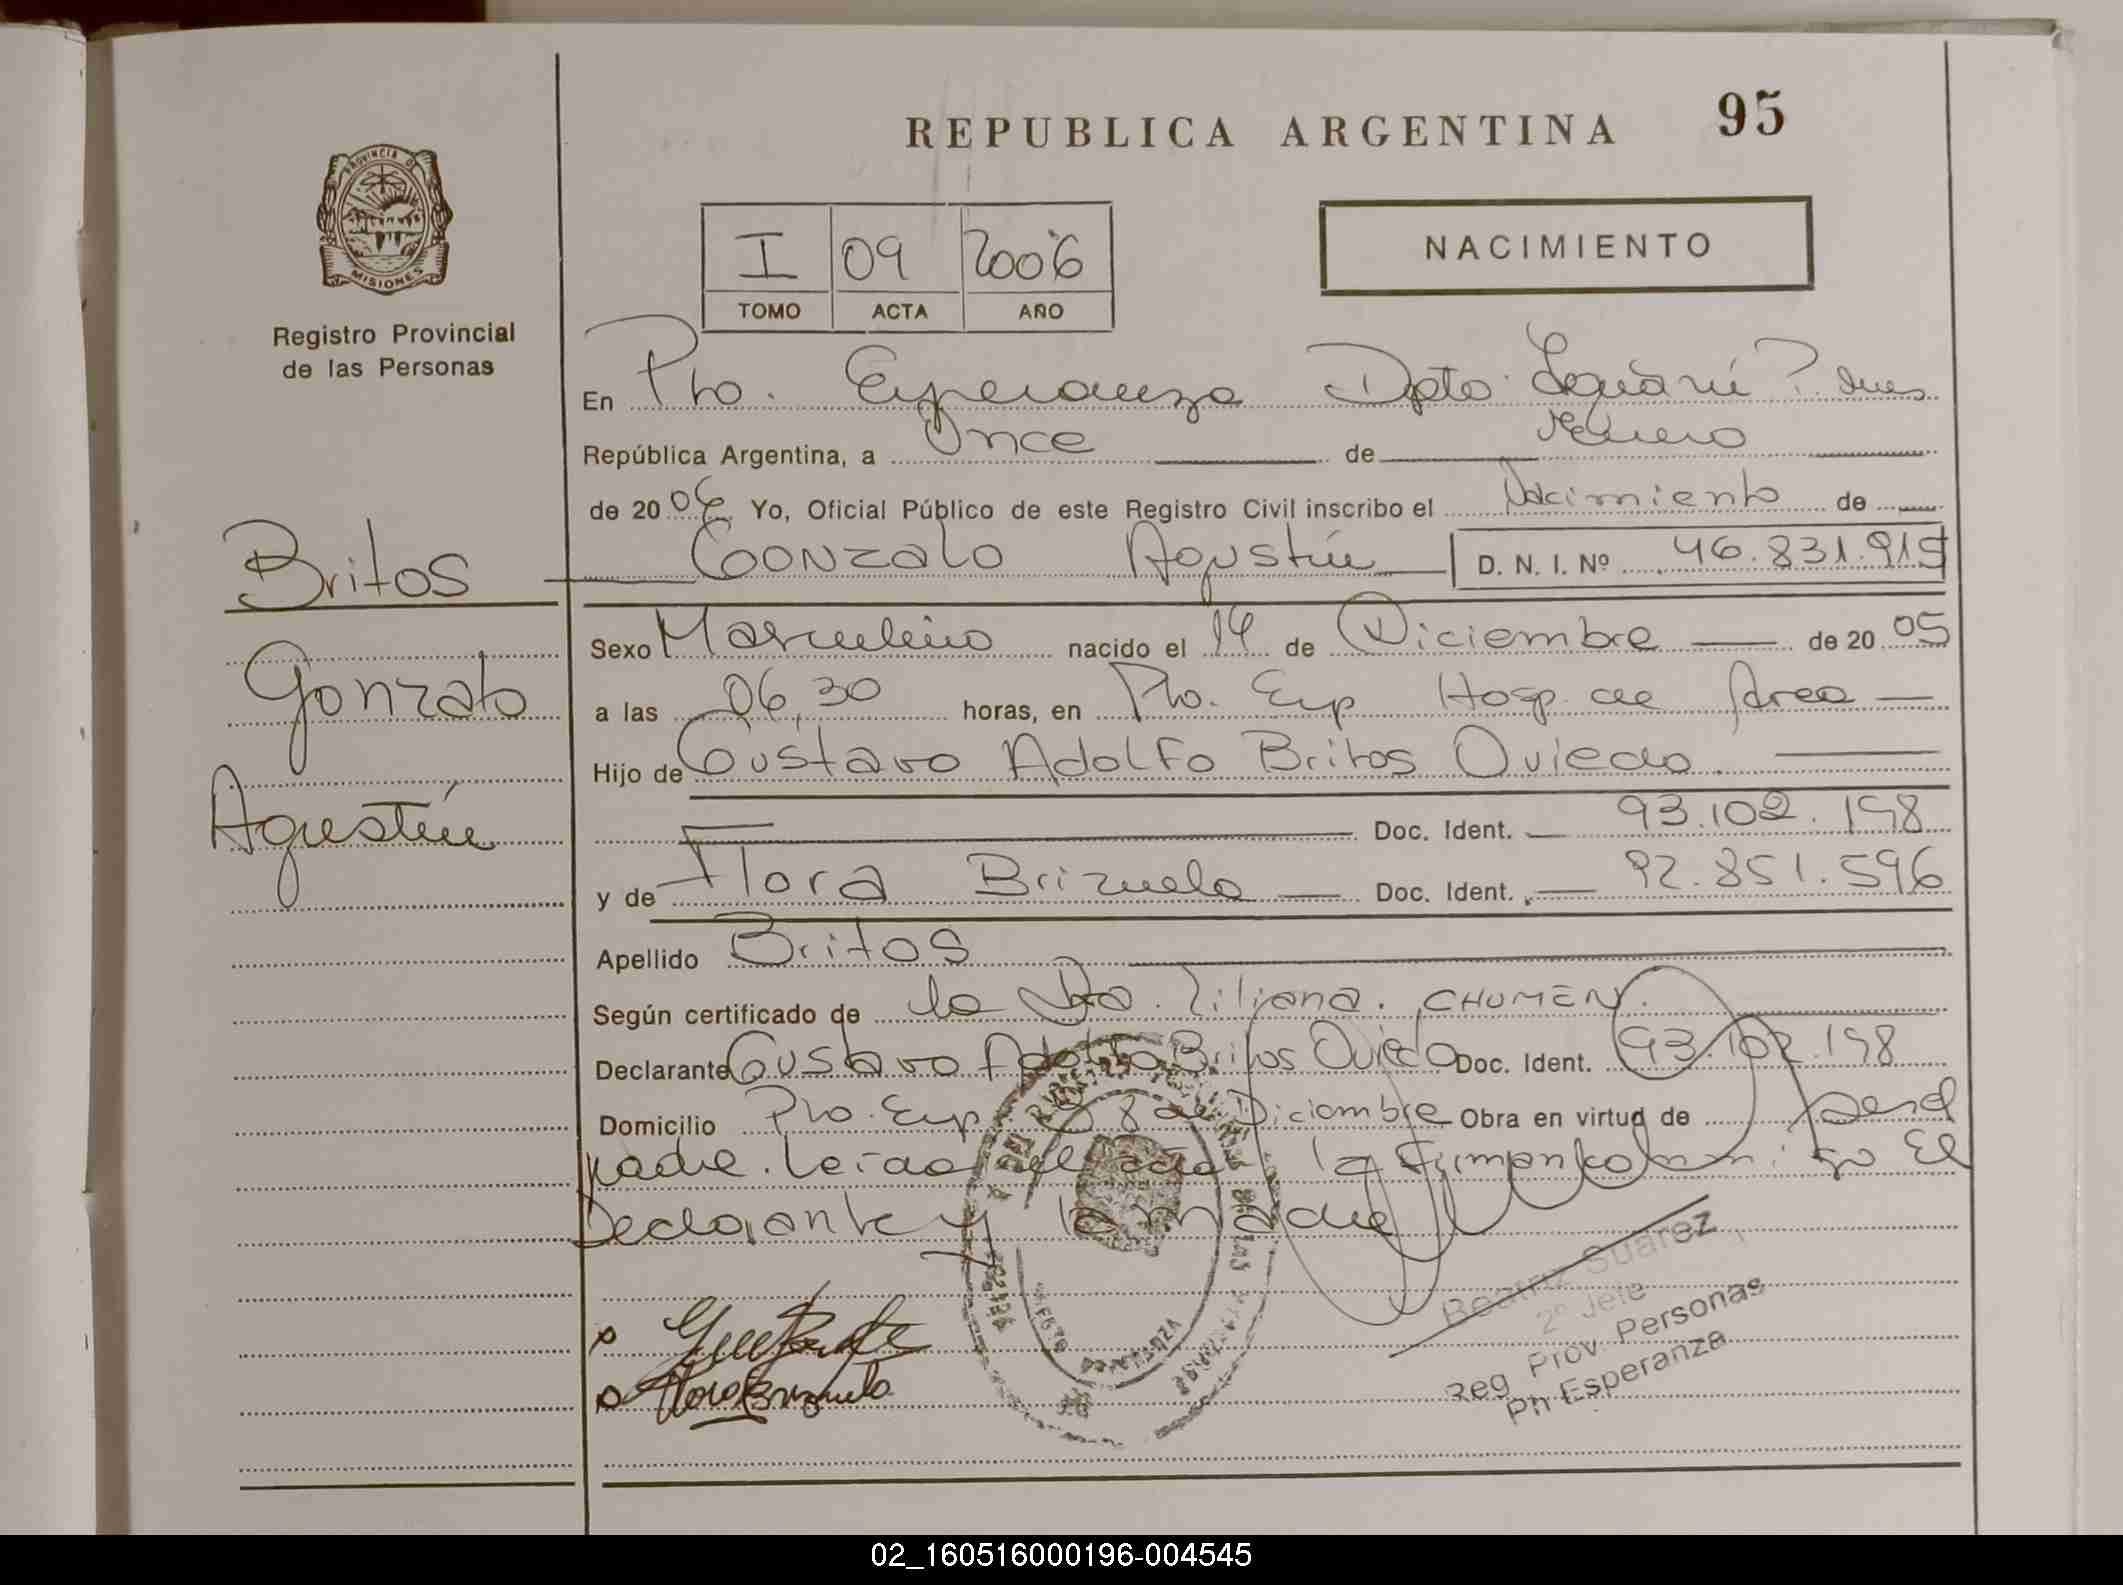 REPUBLICA ARGENTINA 95
PROVINCIA DE
MISIONES
Registro Provincial
de las Personas
I 09 2006
TOMO ACTA AÑO
NACIMIENTO
En Pto. Esperanza Dpto. Iguazú
República Argentina, a Once de Enero
de 2006 Yo, Oficial Público de este Registro Civil inscribo el Nacimiento de
Britos
Gonzalo
Agustín
Gonzalo Agustín D. N. I. Nº 46.831.919
Sexo Masculino nacido el 14 de Diciembre de 2005
a las 06,30 horas, en Pto. Esp Hosp. de Area
Hijo de Gustavo Adolfo Britos Oviedo
Doc. Ident. 93.102.198
y de Flora Brizuela Doc. Ident. 92.851.596
Apellido Britos
Según certificado de la Dra. Liliana. CHUMEN.
Declarante Gustavo Adolfo Britos Oviedo Doc. Ident. 93.102.198
Domicilio Pto. Esp 8 de Diciembre Obra en virtud de ser el
padre. Leída el acta la firman conmigo El
Declarante y la madre
Flora Brizuela
Beatriz Suarez
2º Jefe
Reg Prov. Personas
Pto Esperanza
02_160516000196-004545